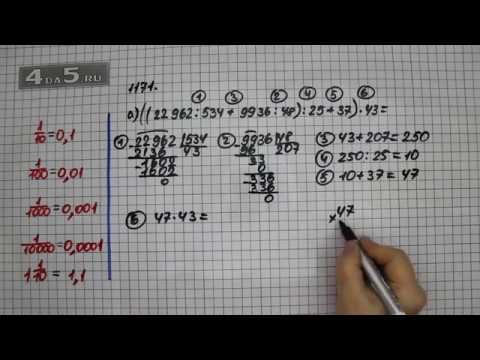 4DA5.RU
1171.
1 3 2 4 5 6
а) ((22 962 : 534 + 9936 : 48) : 25 + 37) · 43 =
1/10 = 0,1
1/100 = 0,01
1/1000 = 0,001
1/10000 = 0,0001
1 1/10 = 1,1
1 22962 534
2136 43
-1602
1602
0
2 9936 48
96 207
33
0
336
336
0
3 43 + 207 = 250
4 250 : 25 = 10
5 10 + 37 = 47
6 47 · 43 =
× 47